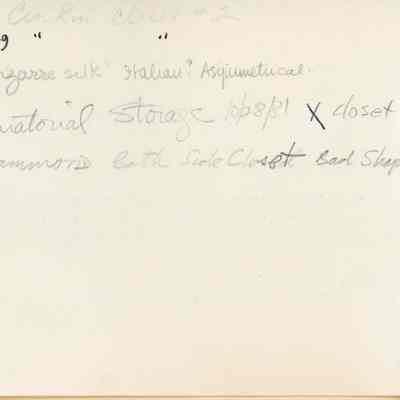 Closet #2
9 " "
izarre silk" Italian? Asymmetrical.
uratorial Storage 10/28/81 X closet
ammond Bath Side Closet Bad Shap